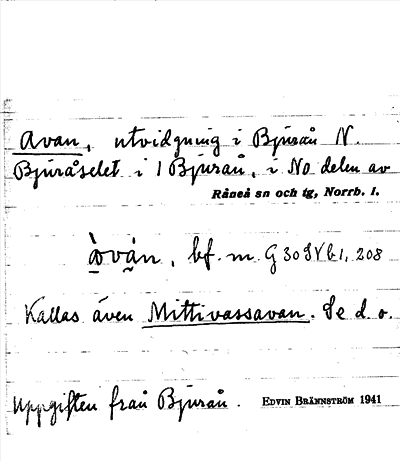 Avan, utvidgning i Bjurån N.
Bjuråselet i 1 Bjurån, i NO delen av
Råneå sn och tg, Norrb. l.
òván, bf. m. G 30 S Vb 1, 208
Kallas även Mittivassavan. Se d. o.
Uppgiften från Bjurån. EDVIN BRÄNNSTRÖM 1941